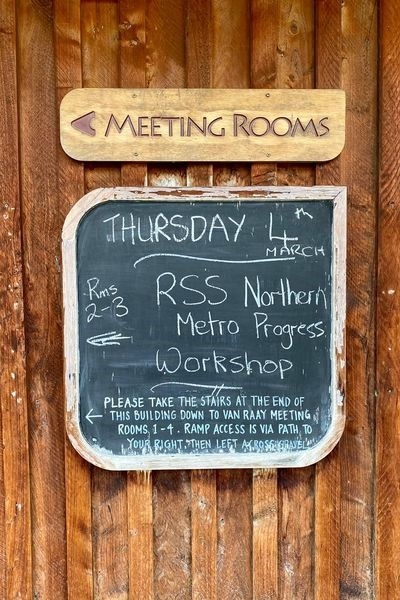 MEETING ROOMS
THURSDAY 4th
MARCH
Rms
2-3
RSS Northern
Metro Progress
Workshop
PLEASE TAKE THE STAIRS AT THE END OF
THIS BUILDING DOWN TO VAN RAAY MEETING
ROOMS 1-4. RAMP ACCESS IS VIA PATH TO
YOUR RIGHT, THEN LEFT ACROSS GRAVEL